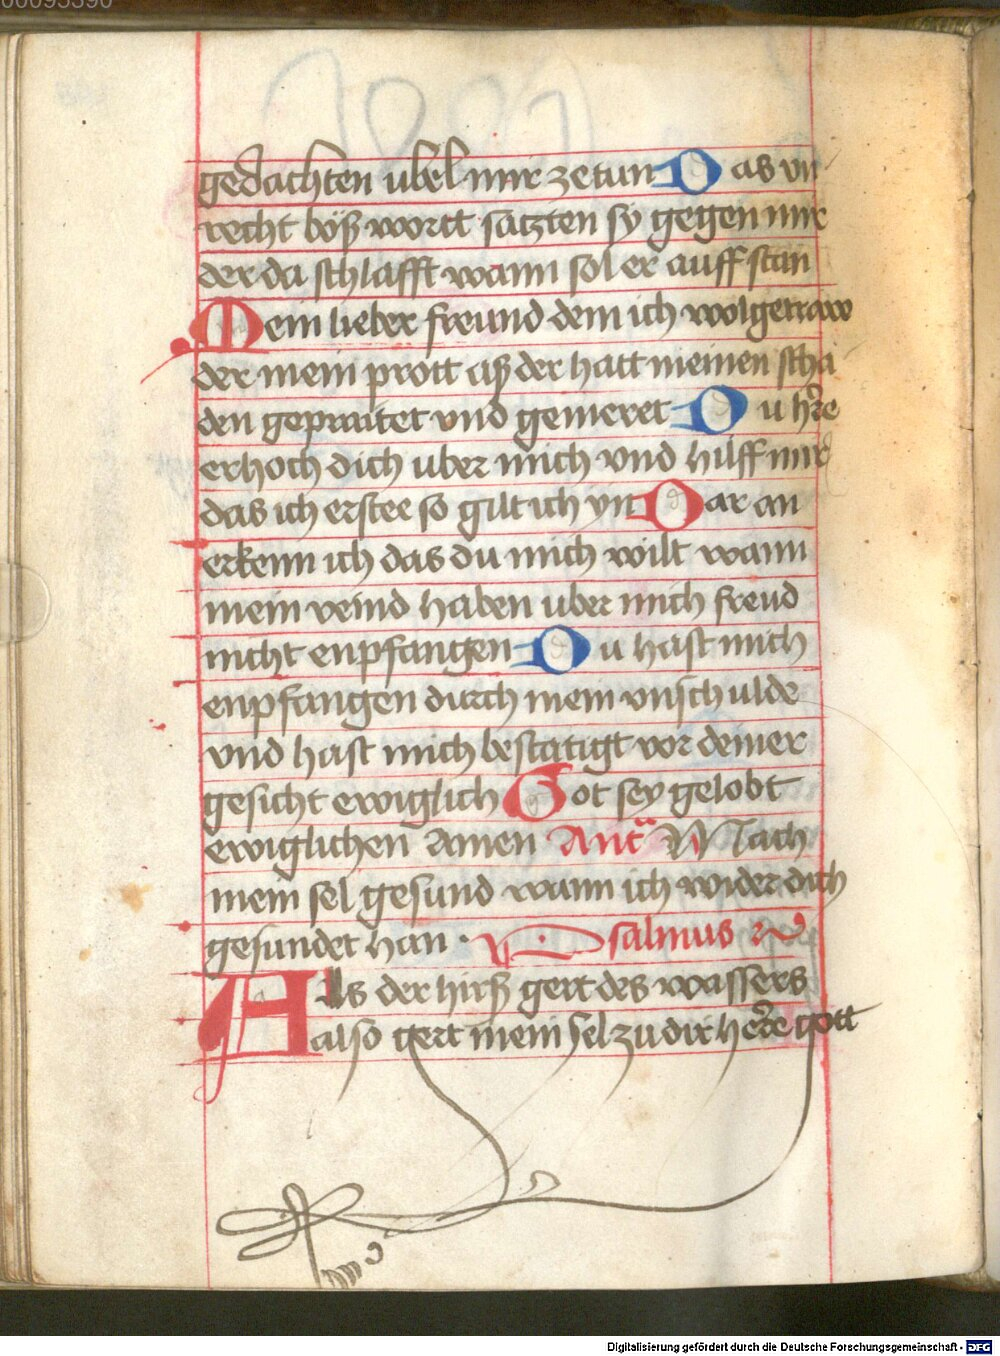 00095390
gedachten ubel mir zetun Das vn
recht böß wortt satzten sy gegen mir
der da schlafft wann sol er auff stan
Mein lieber freund dem ich wolgetraw
der mein prott aß der hatt meinen scha
den gepraitet vnd gemeret Du hre
erhoch dich uber mich vnd hilff mir
das ich erstee so gilt ich yn Dar an
erkenn ich das du mich wilt wann
mein veind haben uber mich freud
nicht enpfangen Du hast mich
enpfangen durch mein vnschulde
vnd hast mich bestatigt vor deiner
gesicht ewiglich Got sey gelobt
ewiglichen Amen Ant Mach
mein sel gesund wann ich wider dich
gesundet han · Psalmus
Als der hirß gert des wassers
also gert mein sel zu dir herre gott
Digitalisierung gefördert durch die Deutsche Forschungsgemeinschaft - DFG